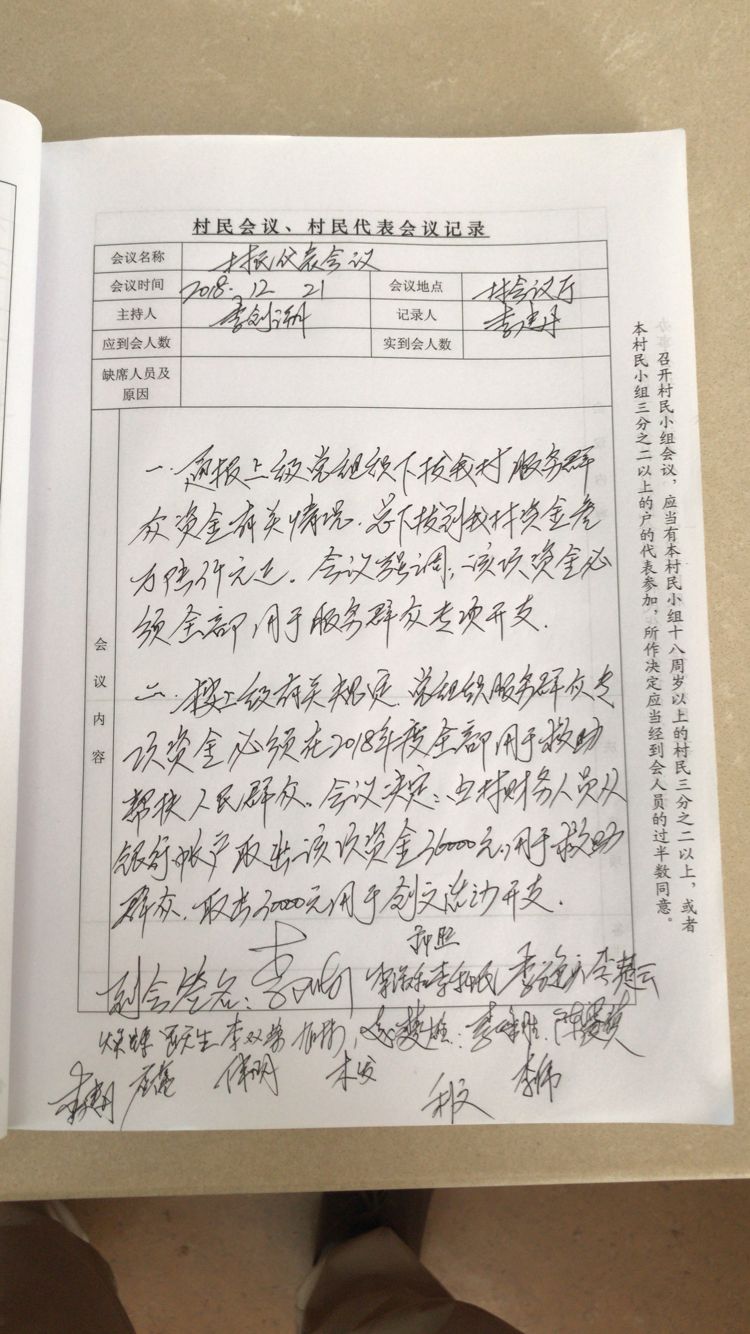 村民会议、村民代表会议记录
会议名称 村民代表会议
会议时间 2018. 12. 21 会议地点 村会议厅
主持人 李剑 记录人 李建丹
应到会人数 实到会人数
缺席人员及
原因
会议内容
一. 通报上级党组织下拔我村服务群
众资金有关情况. 总下拔到我村资金叁
万陆仟元正. 会议强调: 该项资金必
须全部用于服务群众专项开支.
二. 按上级有关规定. 党组织服务群众专
项资金必须在2018年度全部用于救助
帮扶人民群众. 会议决定: 由村财务人员从
银行帐户取出该项资金36000元, 用于救助
群众. 取出30000元用于创文活动开支.
到会签名: 李 李
李双 陈
伟明 木发 利文 李伟
召开村民小组会议，应当有本村民小组十八周岁以上的村民三分之二以上，或者
本村民小组三分之二以上的户的代表参加，所作决定应当经到会人员的过半数同意。